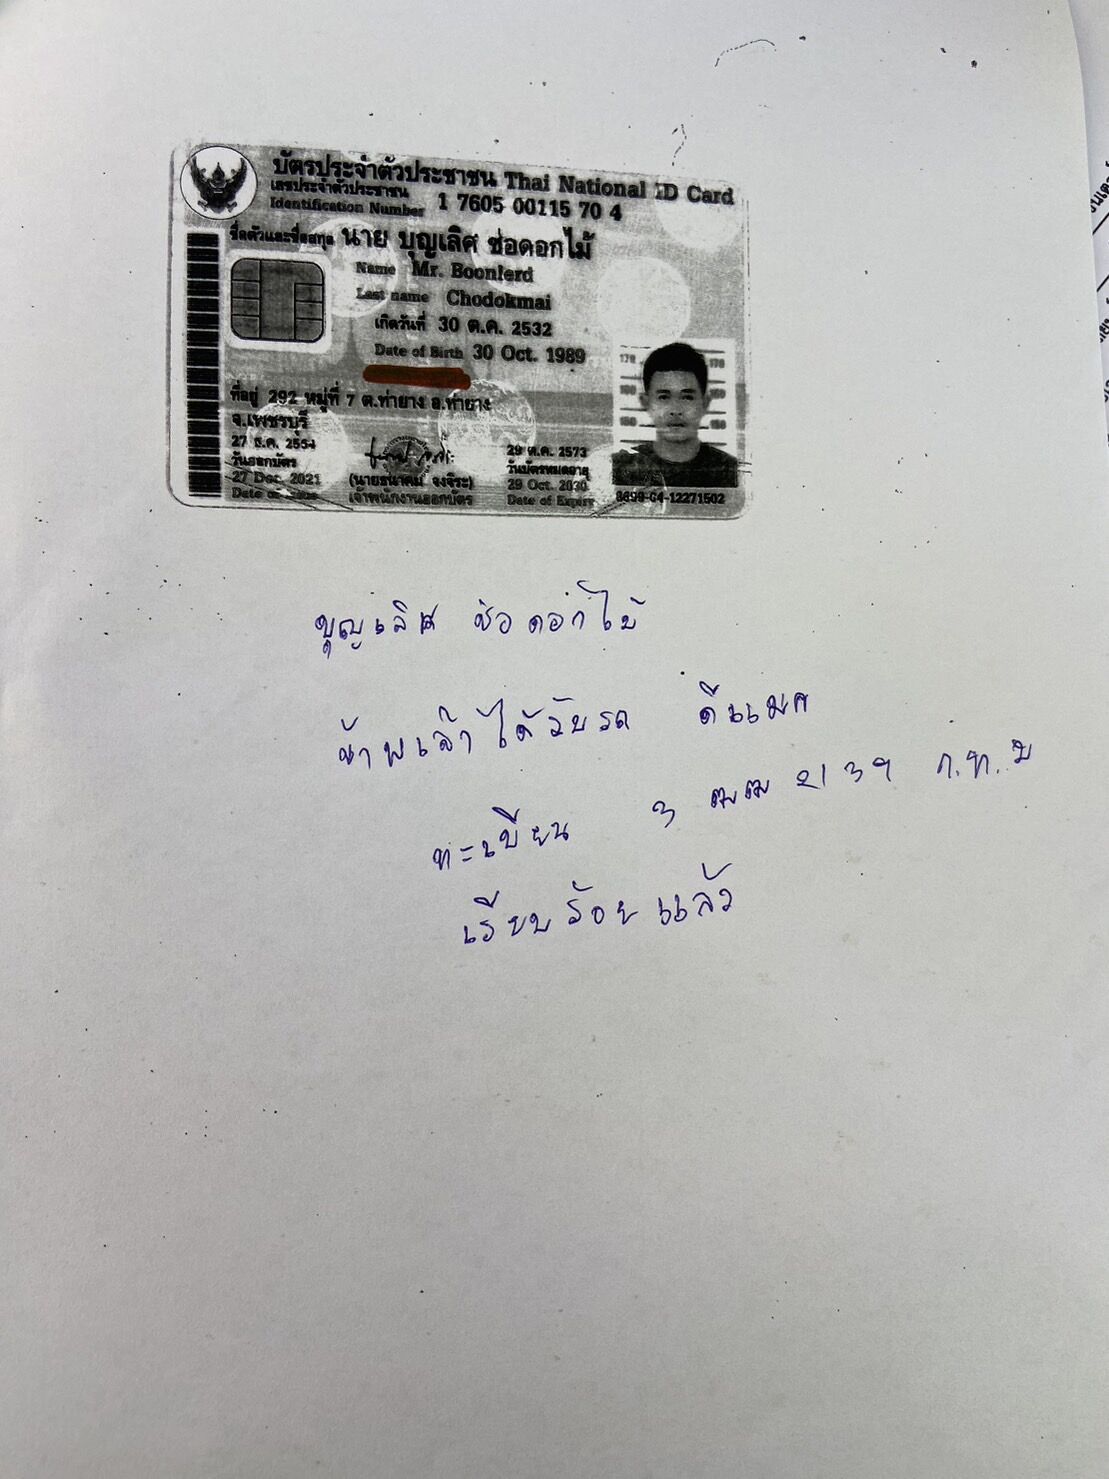 บัตรประจำตัวประชาชน Thai National ID Card
เลขประจำตัวประชาชน
Identification Number 1 7605 00115 70 4
ชื่อตัวและชื่อสกุล นาย บุญเลิศ ช่อดอกไม้
Name Mr. Boonlerd
Last name Chodokmai
เกิดวันที่ 30 ต.ค. 2532
Date of Birth 30 Oct. 1989
ที่อยู่ 292 หมู่ที่ 7 ต.ท่ายาง อ.ท่ายาง
จ.เพชรบุรี
27 ธ.ค. 2564
วันออกบัตร
27 Dec. 2021
Date of Issue
(นายธนาคม จงจิระ)
เจ้าพนักงานออกบัตร
29 ต.ค. 2573
วันบัตรหมดอายุ
29 Oct. 2030
Date of Expiry
170 170
160 160
150 150
8699-04-12271502
บุญเลิศ ช่อดอกไม้
ข้าพเจ้าได้รับรถ ดีแมค
ทะเบียน 3 ฒฒ 2139 ก.ท.ม
เรียบร้อยแล้ว